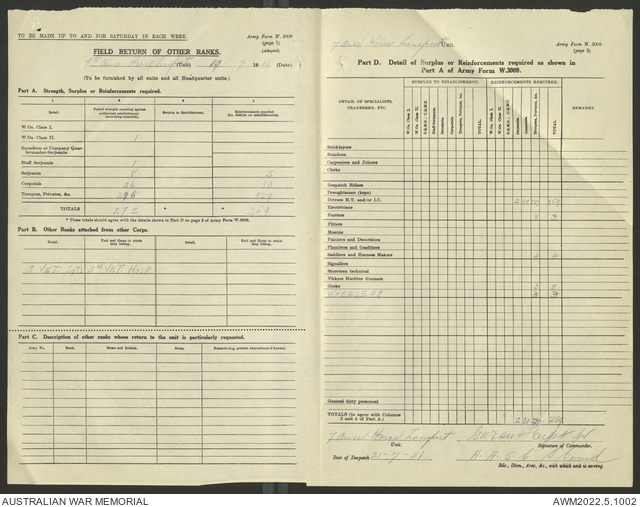 TO BE MADE UP TO AND FOR SATURDAY IN EACH WEEK.
Army Form W. 3009
(page 1)
(Adapted)
FIELD RETURN OF OTHER RANKS.
(Unit) 19 7 19 (Date)
(To be furnished by all units and all Headquarter units.)
Part A. Strength, Surplus or Reinforcements required.
1 2 3 4
Detail
Posted strength counting against authorized establishment (excluding attached).
Surplus to Establishment.
Reinforcements required (i.e. deficits on establishment).
W.Os. Class I.
W.Os. Class II. 1
Squadron or Company Quartermaster-Serjeants
Staff Serjeants 1
Serjeants 8 2
Corporals
Troopers, Privates, &c.
TOTALS 272 259
* These totals should agree with the details shown in Part D on page 2 of Army Form W.3009.
Part B. Other Ranks attached from other Corps.
Detail. Unit and Corps to which they belong. Detail. Unit and Corps to which they belong.
3 VET. SGTS VET HOSP
Part C. Description of other ranks whose return to the unit is particularly requested.
Army No. Rank. Name and Initials. Corps. Remarks (e.g. present whereabouts if known).
7 Aust Horse Transport Unit.
Army Form W. 3009
(page 2)
Part D. Detail of Surplus or Reinforcements required as shown in
Part A of Army Form W.3009.
SURPLUS TO ESTABLISHMENT. REINFORCEMENTS REQUIRED.
DETAIL OF SPECIALISTS, TRADESMEN, ETC.
W.Os. Class I. W.Os. Class II. S.Q.M.S., C.Q.M.S. Staff-Serjeants. Serjeants. Corporals. Troopers, Privates, &c. TOTAL.
REMARKS.
Bricklayers
Butchers
Carpenters and Joiners
Clerks
Despatch Riders
Draughtsmen (topo)
Drivers H.T. and/or I.C.
Electricians
Farriers 3 3
Fitters
Masons
Painters and Decorators
Plumbers and Gasfitters
Saddlers and Harness Makers 4 4
Signallers
Storemen technical
Vickers Machine Gunners
Cooks 3 3
WHEELERS
General duty personnel
TOTALS (to agree with Columns 3 and 4 of Part A.)
7 Aust Horse Transport
Unit. Signature of Commander.
Date of Despatch 21-7-41 A.A.S.C.
Bde., Divn., Area, &c., with which unit is serving.
AUSTRALIAN WAR MEMORIAL
AWM2022.5.1002